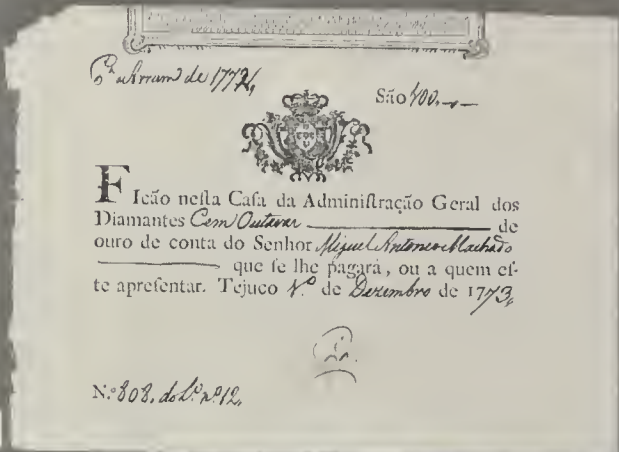 de 1772,
São 100.
Ficão neſta Caſa da Adminiſtração Geral dos
Diamantes Cem Outavas de
ouro de conta do Senhor Miguel Antonio Machado
que ſe lhe pagará, ou a quem eſ-
te apreſentar. Tejuco 1.º de Dezembro de 1773,
N.º 808. do L.º nº 12,